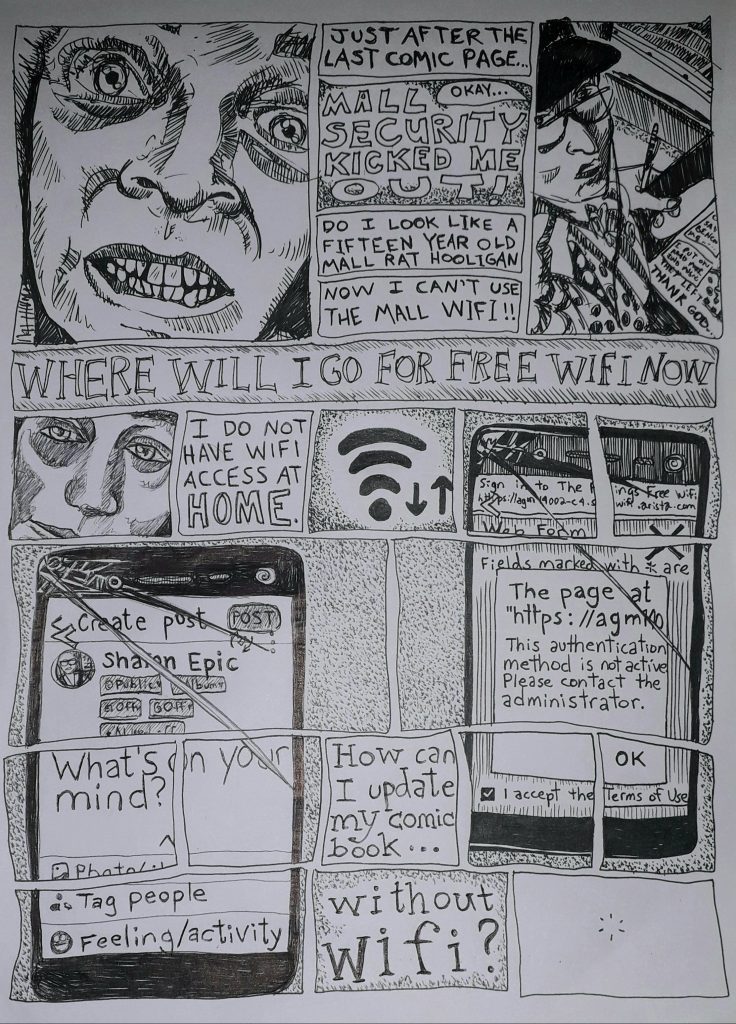 JUST AFTER THE
LAST COMIC PAGE...
OKAY...
MALL
SECURITY
KICKED ME
OUT!
DO I LOOK LIKE A
FIFTEEN YEAR OLD
MALL RAT HOOLIGAN
NOW I CAN'T USE
THE MALL WIFI!!
THANK GOD.
WHERE WILL I GO FOR FREE WIFI NOW
I DO NOT
HAVE WIFI
ACCESS AT
HOME.
Sign in to The
ings Free Wifi
wifi.arista.com
Web Form
Fields marked with * are
The page at
"https://agm
This authentication
method is not active
Please contact the
administrator.
OK
I accept the Terms of Use
Create post
POST
Sharon Epic
Public
Album
What's on your
mind?
Photo/
Tag people
Feeling/activity
How can
I update
my comic
book...
without
wifi?